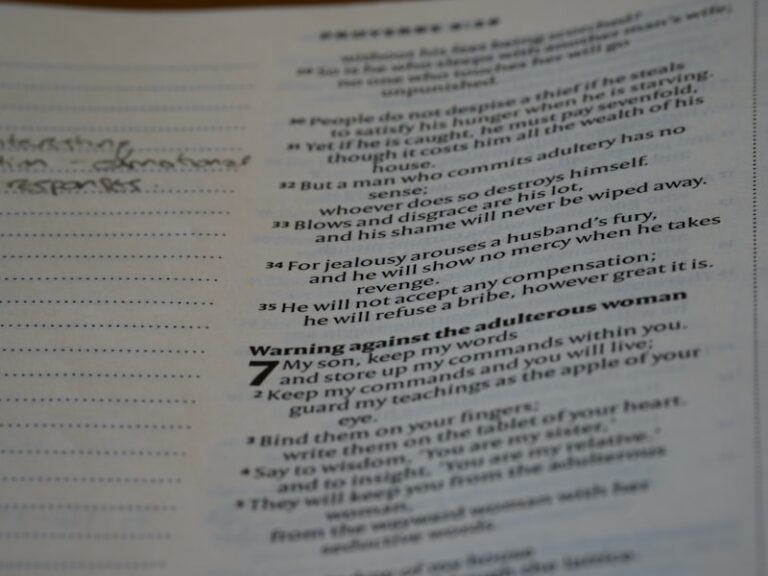 PROVERBS 6:28
without his feet being scorched?
29 So is he who sleeps with another man's wife;
no one who touches her will go
unpunished.
30 People do not despise a thief if he steals
to satisfy his hunger when he is starving.
31 Yet if he is caught, he must pay sevenfold,
though it costs him all the wealth of his
house.
32 But a man who commits adultery has no
sense;
whoever does so destroys himself.
33 Blows and disgrace are his lot,
and his shame will never be wiped away.
34 For jealousy arouses a husband's fury,
and he will show no mercy when he takes
revenge.
35 He will not accept any compensation;
he will refuse a bribe, however great it is.
Warning against the adulterous woman
7 My son, keep my words
and store up my commands within you.
2 Keep my commands and you will live;
guard my teachings as the apple of your
eye.
3 Bind them on your fingers;
write them on the tablet of your heart.
4 Say to wisdom, 'You are my sister,'
and to insight, 'You are my relative.'
5 They will keep you from the adulterous
woman,
from the wayward woman with her
seductive words.
of my house
emotional
responses.